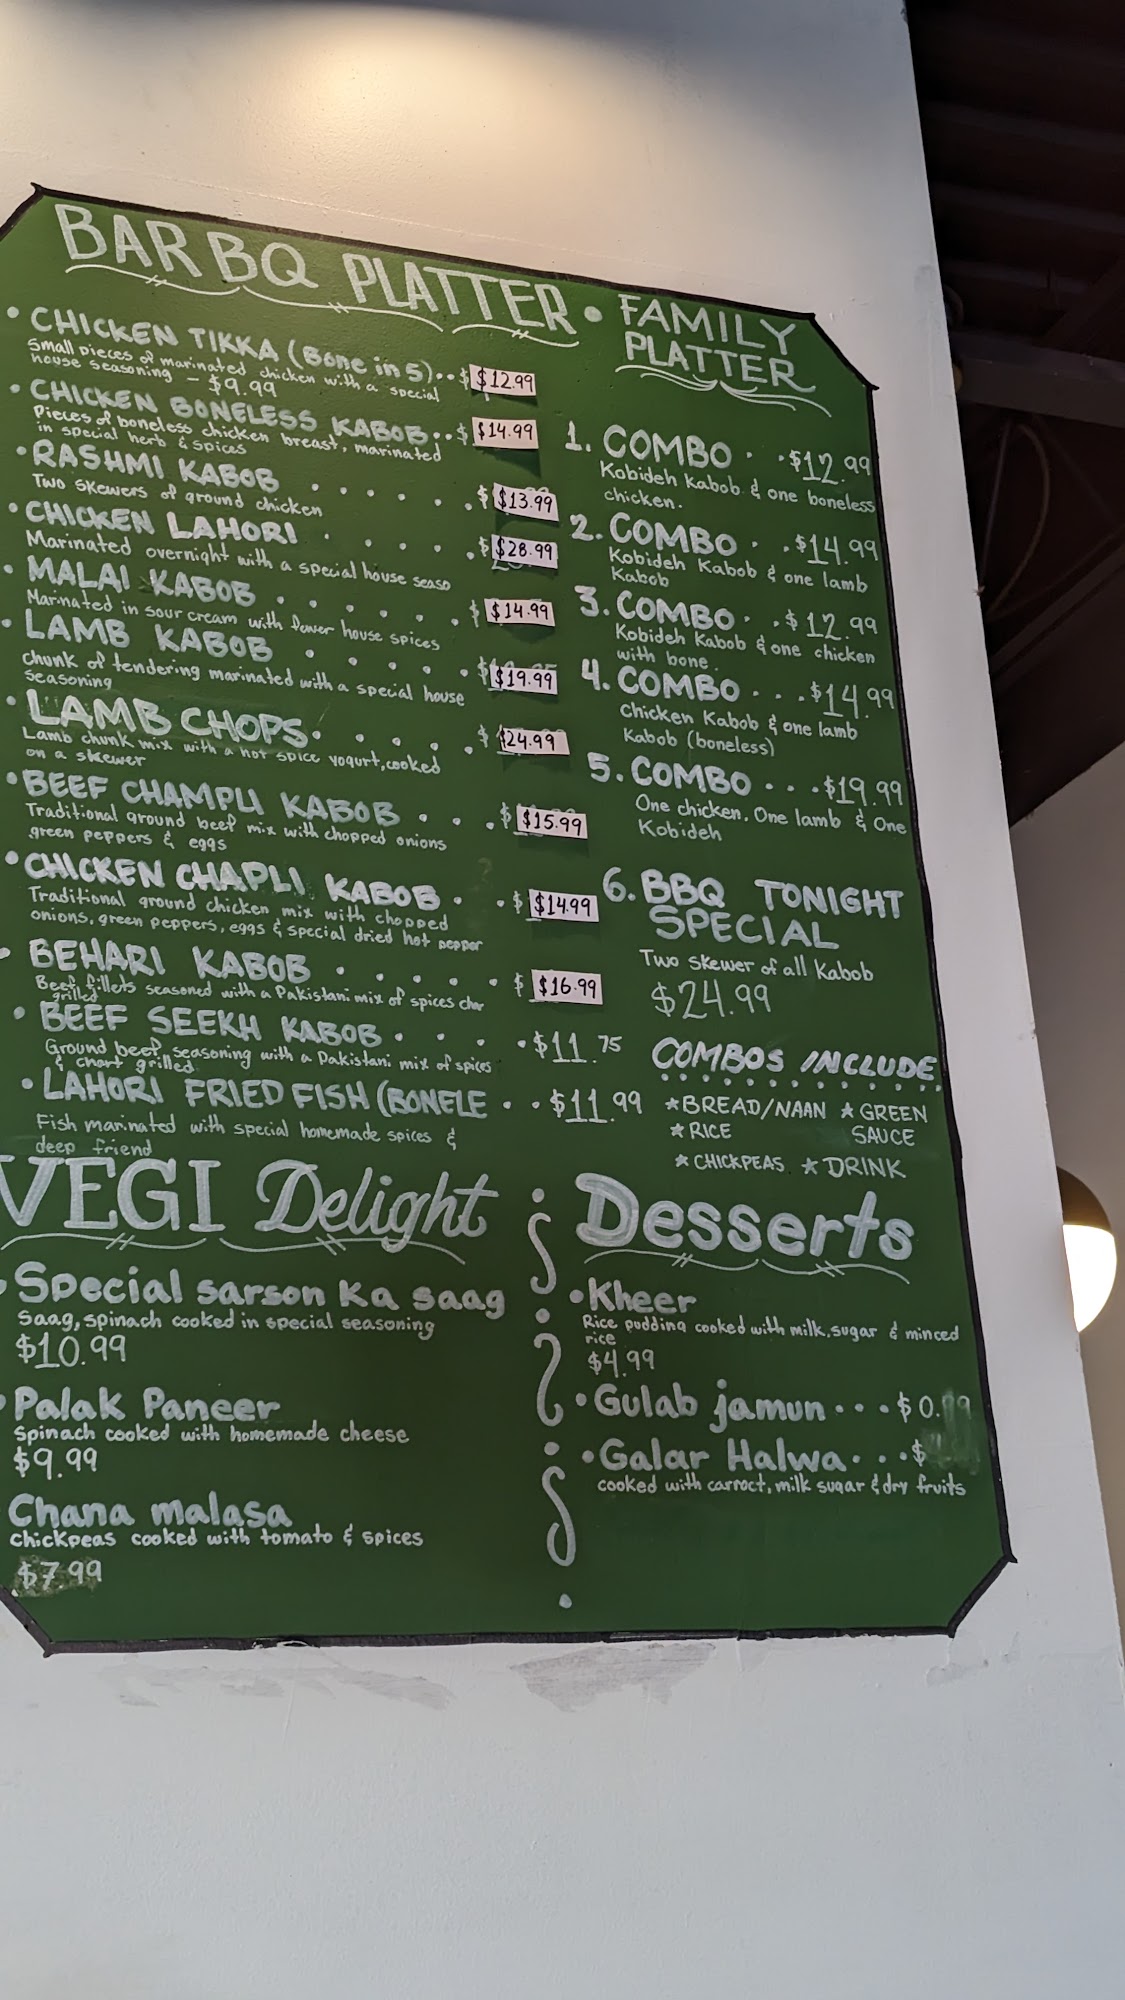 BAR BQ PLATTER
• CHICKEN TIKKA (Bone in 5)..$ $12.99
Small pieces of marinated chicken with a special
house seasoning - $9.99
• CHICKEN BONELESS KABOB..$ $14.99
Pieces of boneless chicken breast, marinated
in special herb & spices
• RASHMI KABOB . . . . . $ $13.99
Two skewers of ground chicken
• CHICKEN LAHORI . . . . .$ $28.99
Marinated overnight with a special house seaso
• MALAI KABOB . . . . . . $ $14.99
Marinated in sour cream with fewer house spices
• LAMB KABOB . . . . . $ $19.99
chunk of tendering marinated with a special house
seasoning
• LAMB CHOPS. . . . . $ $24.99
Lamb chunk mix with a hot spice yogurt, cooked
on a skewer
• BEEF CHAMPLI KABOB . . . $ $15.99
Traditional ground beef mix with chopped onions
green peppers & eggs
• CHICKEN CHAPLI KABOB . . $ $14.99
Traditional ground chicken mix with chopped
onions, green peppers, eggs & special dried hot pepper
• BEHARI KABOB . . . . . $ $16.99
Beef fillets seasoned with a Pakistani mix of spices char
grilled
• BEEF SEEKH KABOB . . . . $11.75
Ground beef seasoning with a Pakistani mix of spices
& chart grilled
• LAHORI FRIED FISH (BONELE . . $11.99
Fish marinated with special homemade spices &
deep friend
• FAMILY
PLATTER
1. COMBO . . $12.99
Kobideh Kabob & one boneless
chicken.
2. COMBO . . $14.99
Kobideh Kabob & one lamb
Kabob
3. COMBO . . $12.99
Kobideh Kabob & one chicken
with bone.
4. COMBO . . . $14.99
Chicken Kabob & one lamb
Kabob (boneless)
5. COMBO . . . $19.99
One chicken. One lamb & One
Kobideh
6. BBQ TONIGHT
SPECIAL
Two skewer of all Kabob
$24.99
COMBOS INCLUDE
★ BREAD/NAAN ★ GREEN
★ RICE SAUCE
★ CHICKPEAS ★ DRINK
VEGI Delight
• Special sarson Ka saag
Saag, spinach cooked in special seasoning
$10.99
• Palak Paneer
Spinach cooked with homemade cheese
$9.99
Chana malasa
Chickpeas cooked with tomato & spices
$7.99
Desserts
• Kheer
Rice pudding cooked with milk, sugar & minced
rice
$4.99
• Gulab jamun . . . $0.
• Galar Halwa . . . $
cooked with carroct, milk sugar & dry fruits